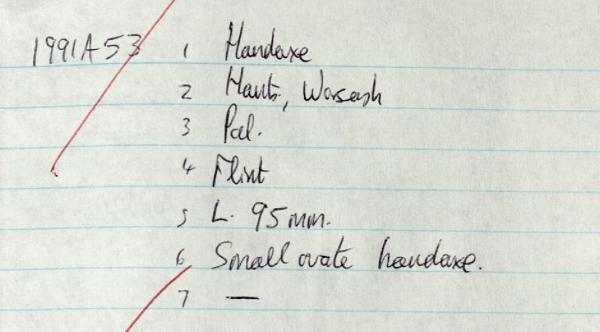 1991A53 1 Handaxe
2 Hants, Warsash
3 Pal.
4 Flint
5 L. 95mm.
6 Small ovate handaxe.
7 —